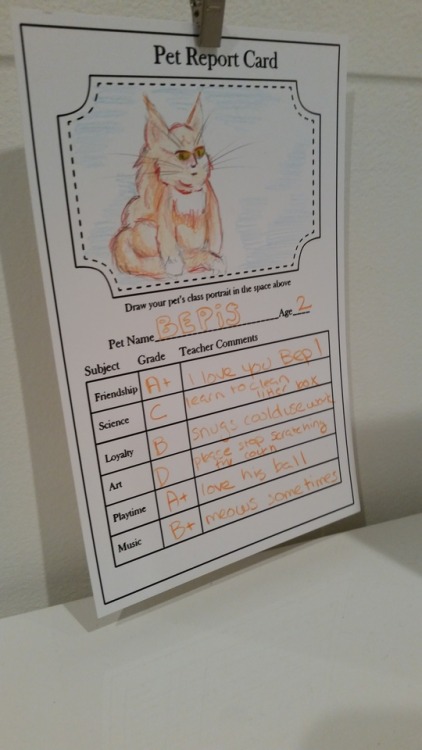 Pet Report Card
Draw your pet's class portrait in the space above
Pet Name BEPIS Age 2
Subject Grade Teacher Comments
Friendship A+ I love you Bep!
Science C learn to clean
litter box
Loyalty B snugs could use work
Art D please stop scratching
the couch
Playtime A+ love his ball
Music B+ meows sometimes